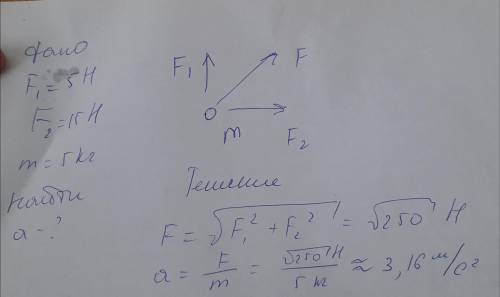 Дано
F₁ = 5 Н
F₂ = 15 Н
m = 5 кг
Найти
a - ?
F₁ F
m F₂
Решение
F = √(F₁² + F₂²) = √250 Н
a = F/m = √250 Н / 5 кг ≈ 3,16 м/с²